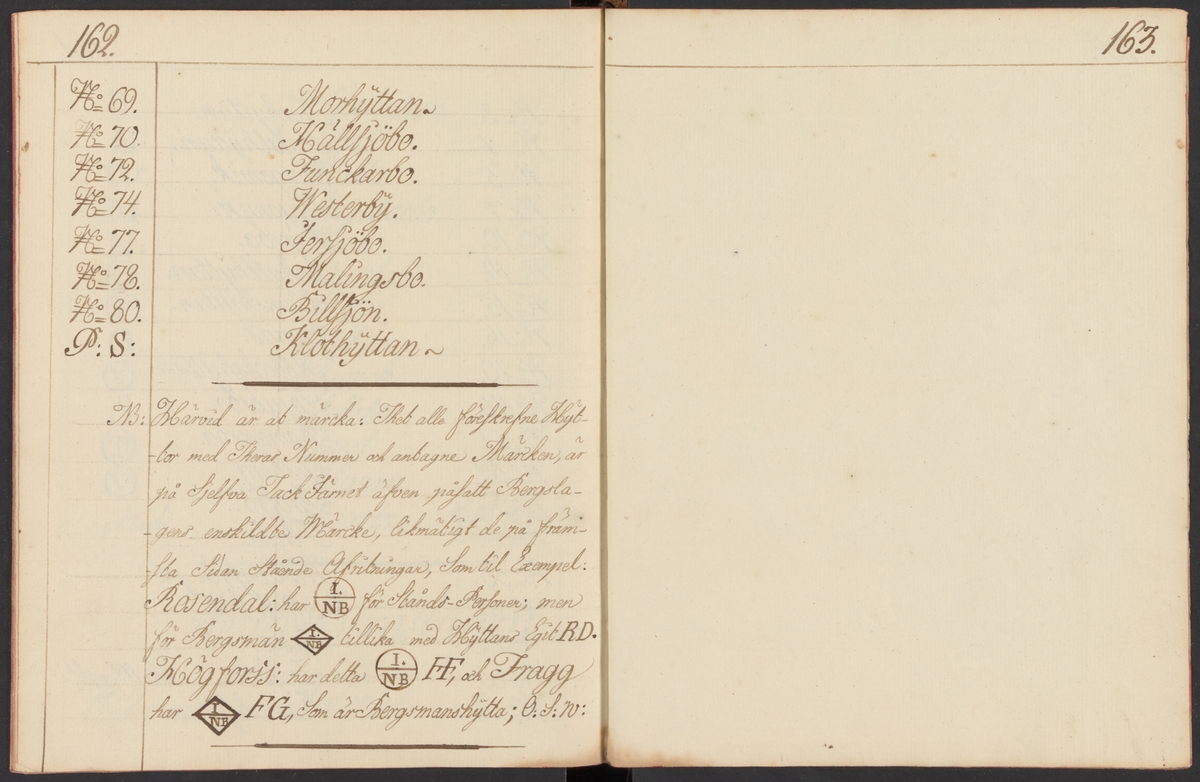 162.
No 69. Morhÿttan.
No 70. Hällsjöbo.
No 72. Funckarbo.
No 74. Westerbÿ.
No 77. Fersjöbo.
No 78. Malingsbo.
No 80. Billsjön.
P: S: Klothÿttan
NB: Härvid är at märcka: Thet alla föreskrefne Hÿt-
-tor med Theras Nummer och antagne Märcken, är
på Sjelfva Tack Järnet äfven påsatt Bergsla-
-gens enskildte Märcke, likmätigt de på främ-
-sta Sidan Stående Afritningar, Som til Exempel:
Rosendal: har I. NB för Stånds-Personer; men
för Bergsmän I. NB tillika med Hÿttans Egit RD.
Högforss: har detta I. NB HF, och Fragg
har I. NB FG, Som är Bergsmanshÿtta; O: S: w:
163.